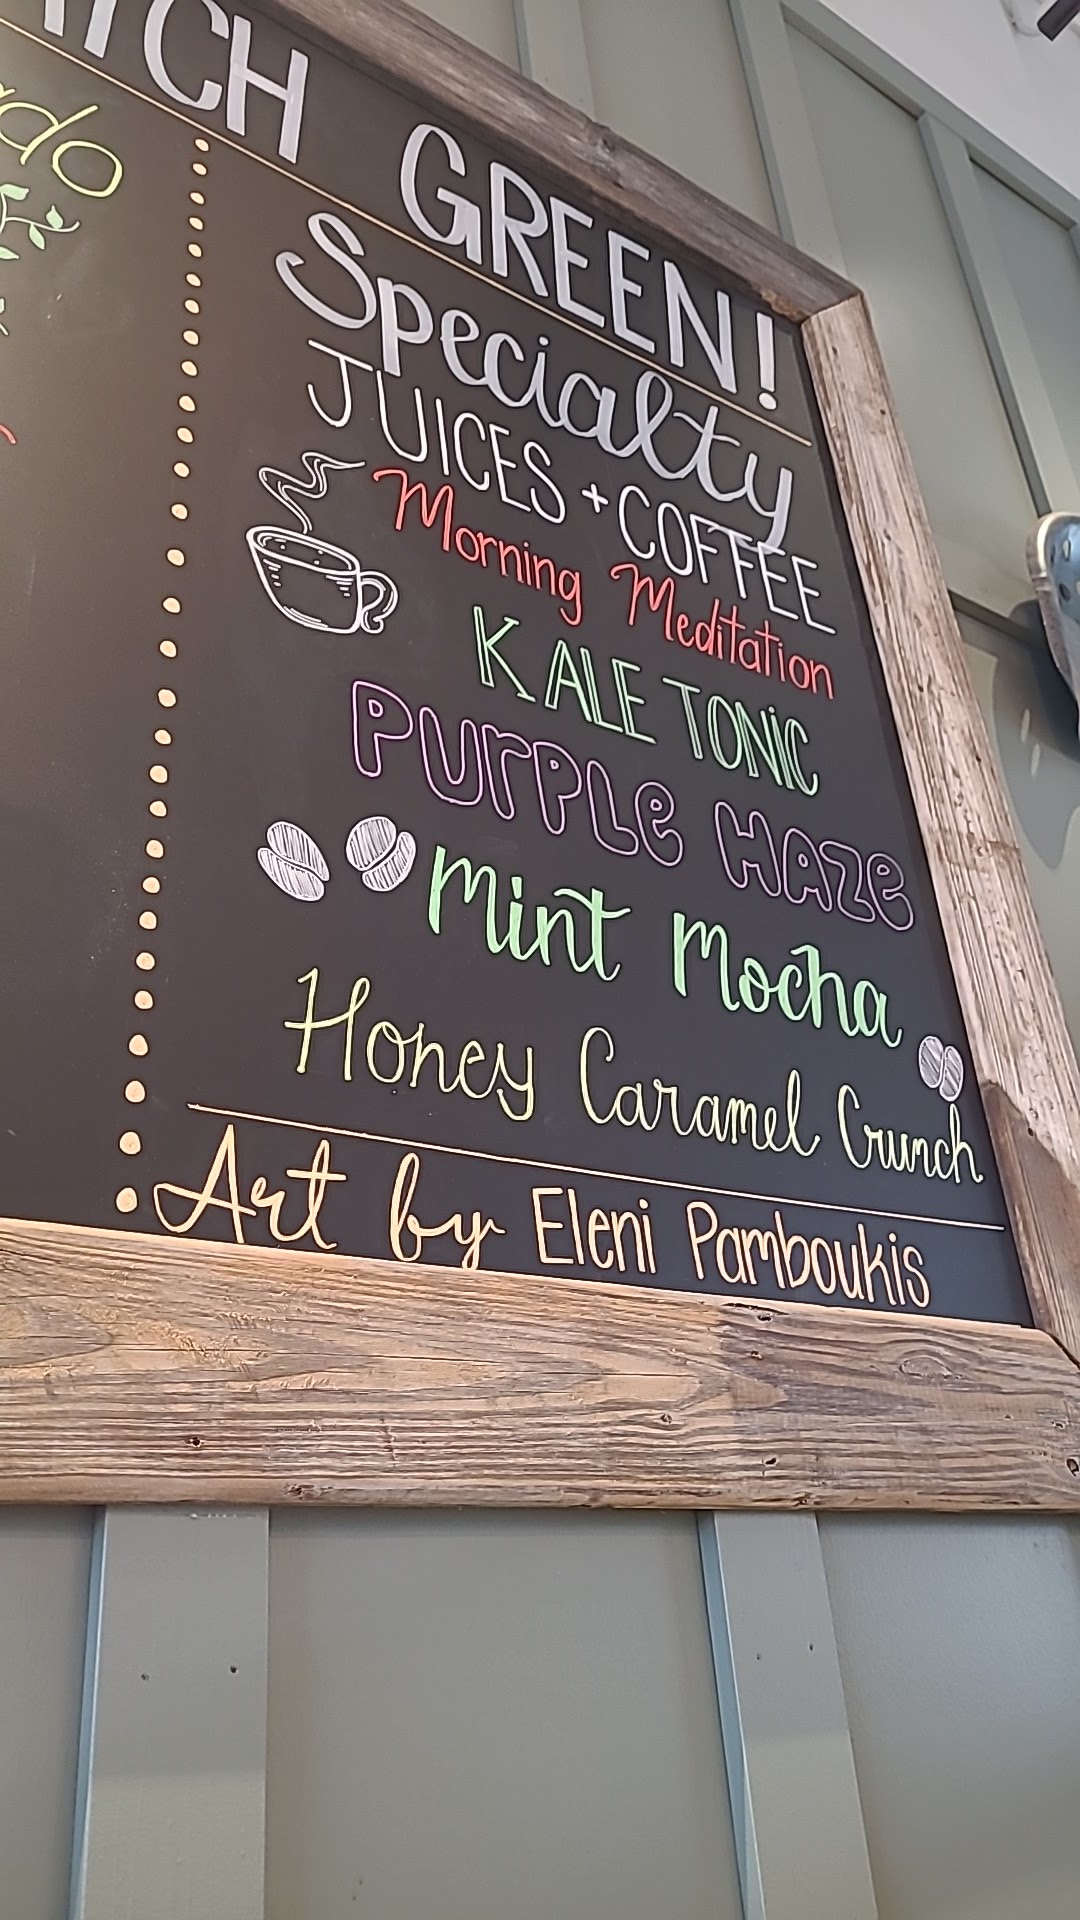 GREEN!
Specialty
JUICES + COFFEE
Morning Meditation
KALE TONIC
PURPLE HAZE
Mint Mocha
Honey Caramel Crunch
Art by Eleni Pamboukis